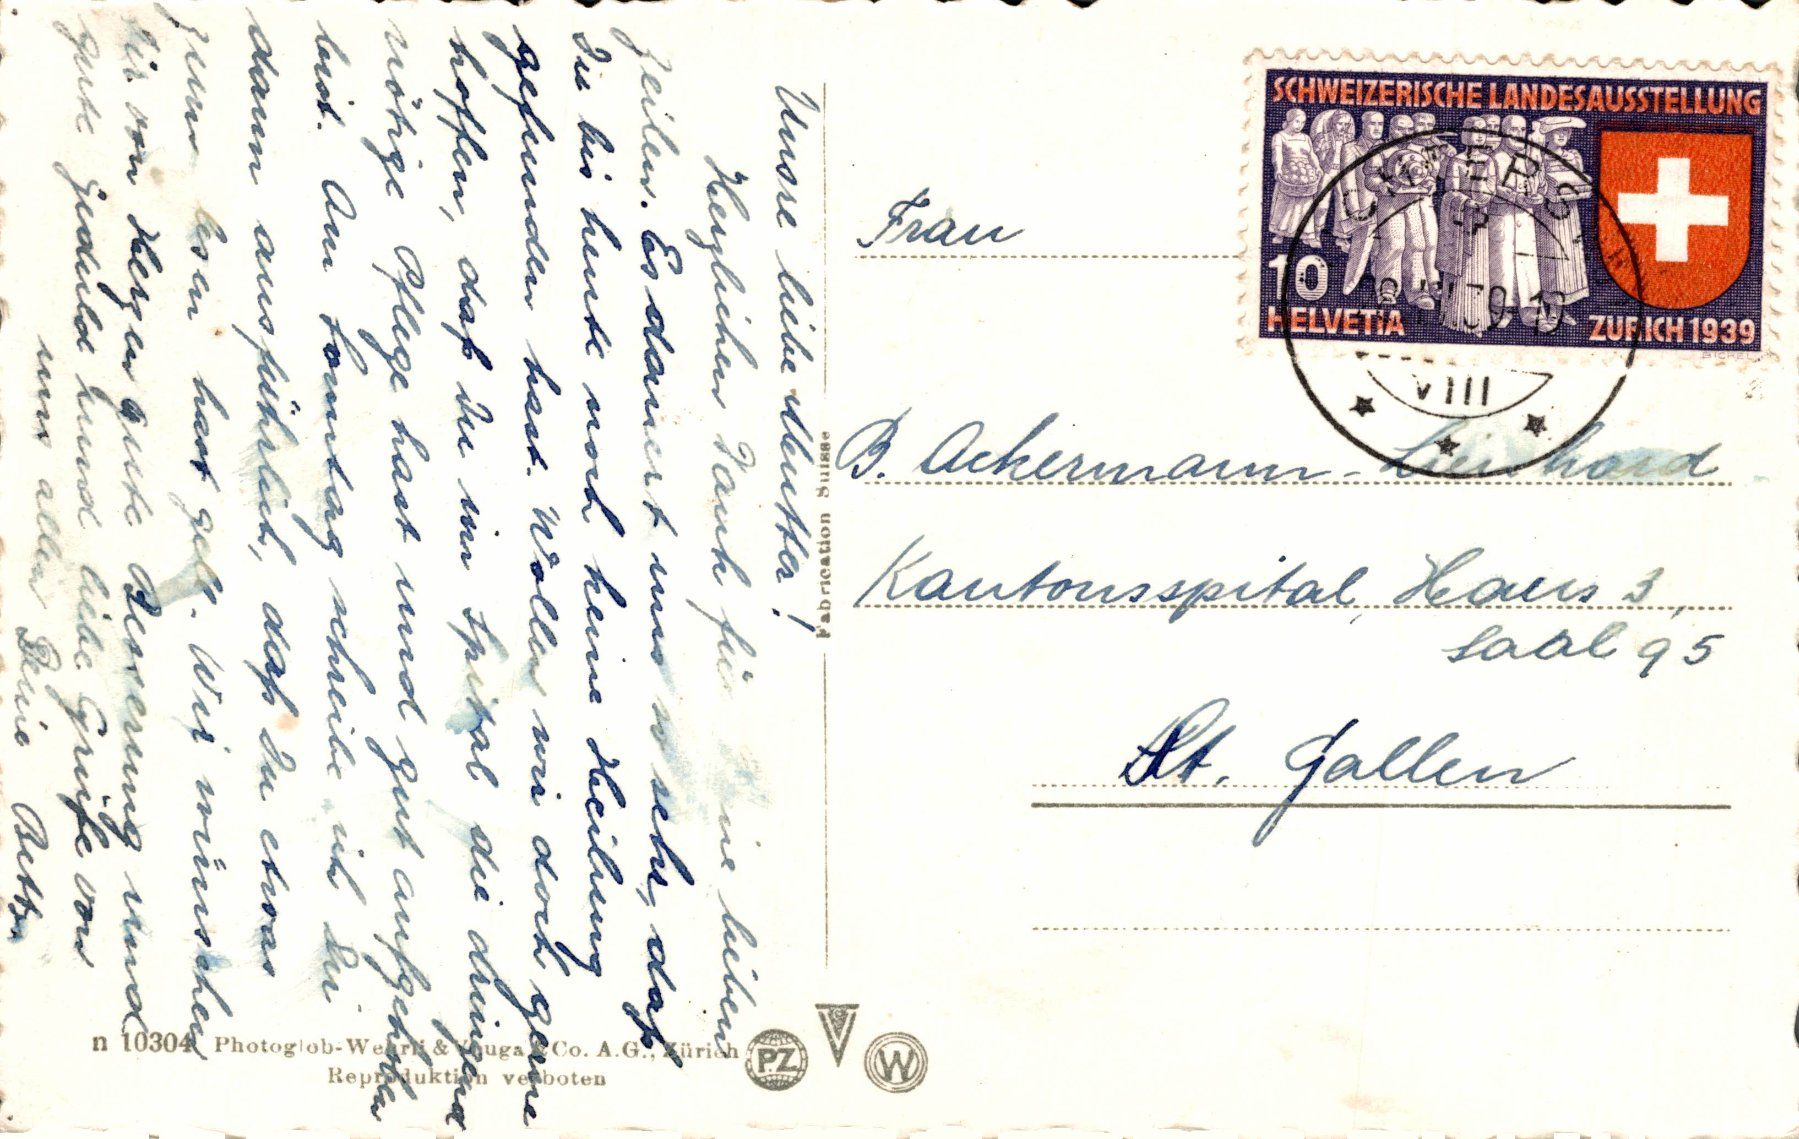 Unsre liebe Mutter!
Herzlichen Dank für Deine lieben
Zeilen. Es dauert uns so sehr, daß
Du bis heute noch keine Heilung
gefunden hast. Wollen wir doch gerne
hoffen, daß Du im Spital die dringend
nötige Pflege hast und gut aufgehoben
bist. Am Sonntag schreibe ich Dir
dann ausführlich, daß Du etwas
zum lesen hast gell. Wir wünschen
Dir von Herzen gute Besserung und
gute Geduld und liebe Grüße von
uns allen Deine
Fabrication Suisse
SCHWEIZERISCHE LANDESAUSSTELLUNG
10
HELVETIA
ZURICH 1939
BICKEL
VIII
Frau
B. Ackermann - Lienhard
Kantonsspital, Haus 3,
Saal 95
St. Gallen
n 10304 Photoglob-Wehrli & Vouga & Co. A.G., Zürich
Reproduktion verboten
PZ
V
W